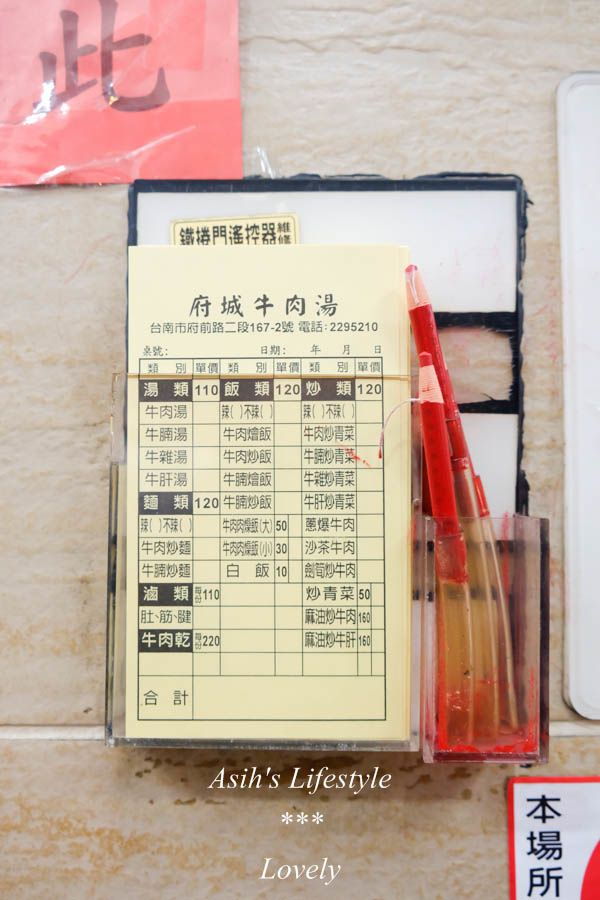 此
鐵捲門遙控器維修
府城牛肉湯
台南市府前路二段167-2號 電話:2295210
桌號: 日期: 年 月 日
類 別 單價 類 別 單價 類 別 單價
湯類 110 飯類 120 炒類 120
牛肉湯 辣( )不辣( ) 辣( )不辣( )
牛腩湯 牛肉燴飯 牛肉炒青菜
牛雜湯 牛肉炒飯 牛腩炒青菜
牛肝湯 牛腩燴飯 牛雜炒青菜
麵類 120 牛腩炒飯 牛肝炒青菜
辣( )不辣( ) 牛肉肉燥飯(大) 50 蔥爆牛肉
牛肉炒麵 牛肉肉燥飯(小) 30 沙茶牛肉
牛腩炒麵 白飯 10 劍筍炒牛肉
滷類 每份110 炒青菜 50
肚、筋、腱 麻油炒牛肉 160
牛肉乾 每份220 麻油炒牛肝 160
合計
Asih's Lifestyle
***
Lovely
本場所